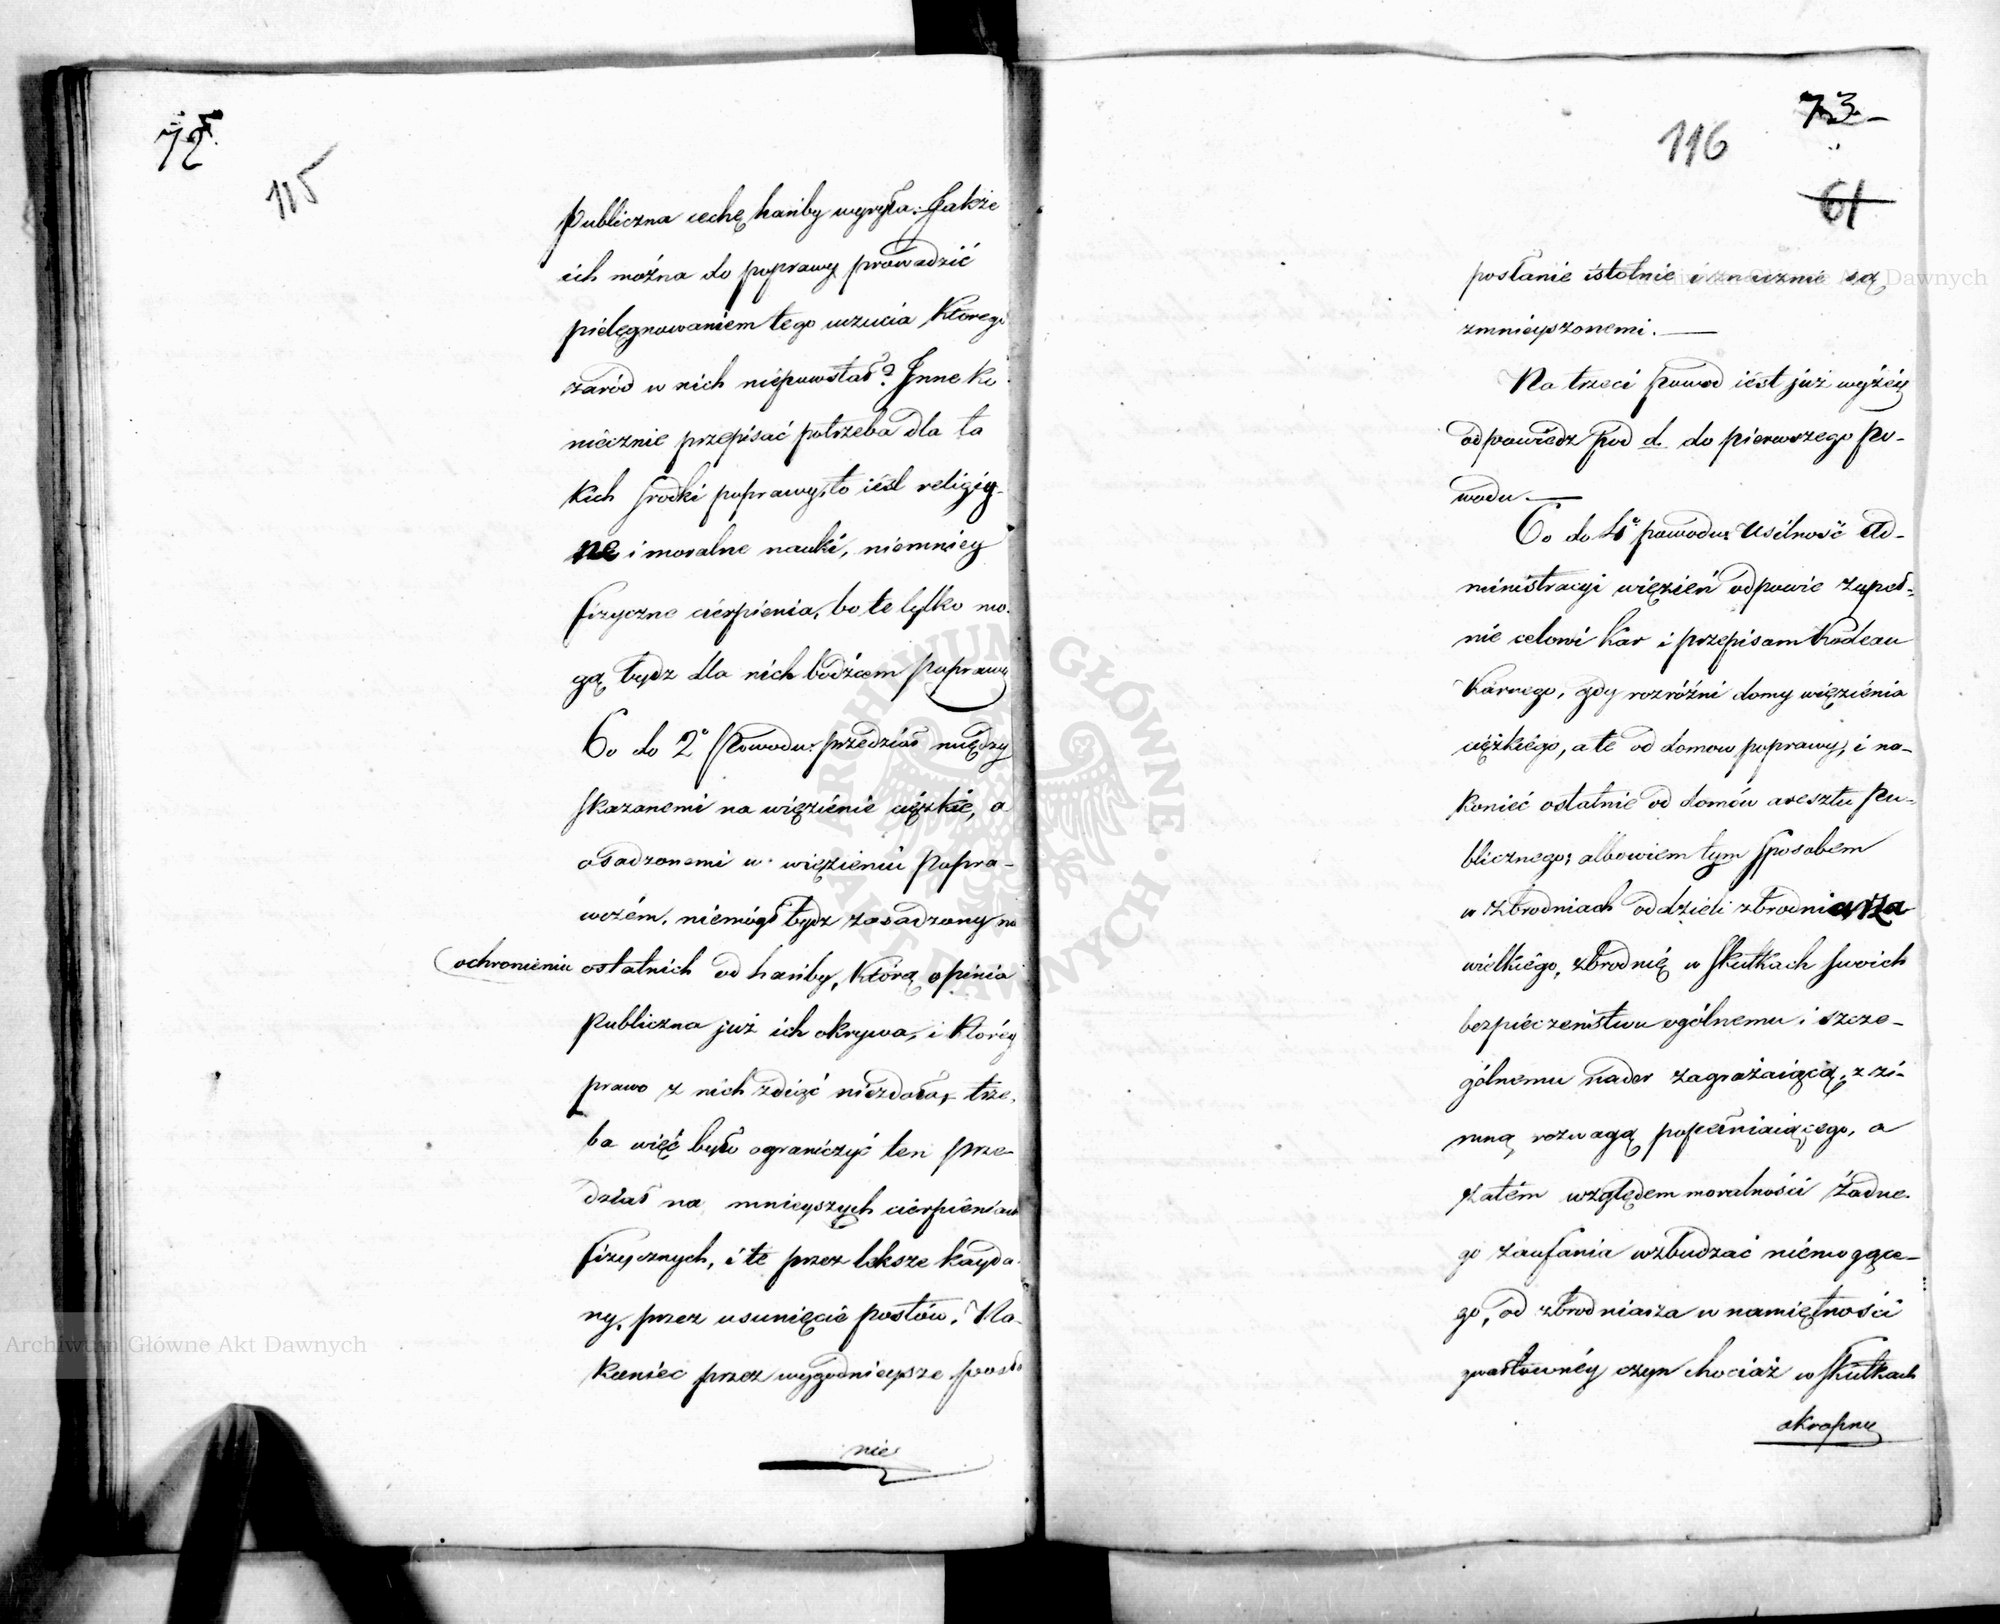 72.
115
Publiczna cechę hańby wyryła. Jakże
ich można do poprawy prowadzić
pielęgnowaniem tego uczucia którego
zaród w nich niepowstał? Inne ko-
niecznie przepisać potrzeba dla ta
kich srodki poprawy, to iest religiy-
ne i moralne nauki, niemniey
fizyczne cierpienia, bo te tylko mo-
gą bydz dla nich bodźcem poprawy
Co do 2° Powodu: przedział między
skazanemi na więzienie cięzkie, a
osadzonemi w więzieniu popra-
wczém, niemógł bydz zasadzony na
ochronieniu ostatnich od hańby, którą opinia
Publiczna już ich okrywa, i któréy
prawo z nich zdiąć niezdoła, trze-
ba więc było ograniczyć ten prze-
dział na mnieyszych cierpieniach
fizycznych, i te przez leksze kayda-
ny, przez usunięcie postów, Na-
koniec przez wygodnieysze posła
nie
73.
116
61
posłanie istotnie i znacznie są
zmnieyszonemi.
Na trzeci powod iest już wyżéy
odpowiedz pod d. do pierwszego po-
wodu.
Co do 4° powodu: Usilność Ad-
ministracyi więzień odpowie zupeł-
nie celowi kar i przepisom Kodexu
Karnego, gdy rozróżni domy więzienia
cięzkiégo, a te od domow poprawy, i na-
koniec ostatnie od domów aresztu pu-
blicznego; albowiem tym sposobem
w zbrodniach oddzieli zbrodniarza
wielkiégo, zbrodnię w skutkach swoich
bezpieczeństwu ogólnemu i szcze-
gólnemu nader zagrażaiącą, z zi-
mną rozwagą popełniaiącego, a
zatém względem moralności żadne-
go zaufania wzbudzać niemogące-
go, od zbrodniarza w namiętności
gwałtownéy czyn chociaż w skutkach
okropny
Archiwum Główne Akt Dawnych
Archiwum Główne Akt Dawnych
ARCHIWUM GŁÓWNE AKT DAWNYCH